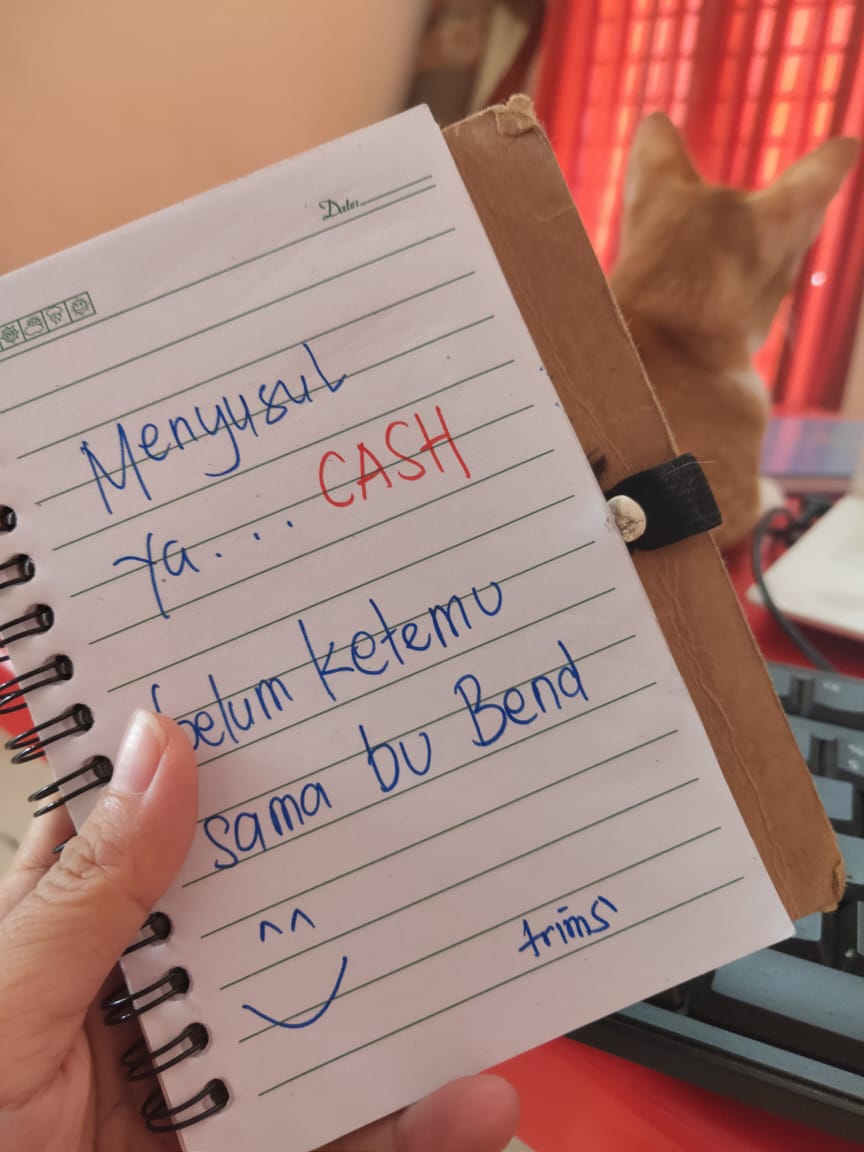 Date:
Menyusul
Ya.... CASH
belum ketemu
sama bu Bend
trims